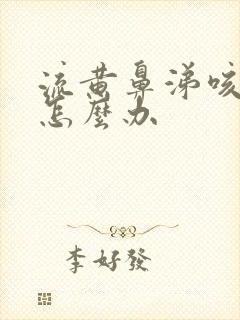 流黄鼻涕咳
怎麼办
李好發